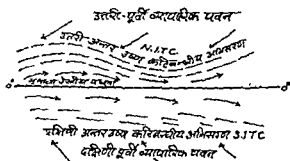 उत्तरी-पूर्वी व्यापारिक पवन
उत्तरी-अन्तर उष्ण कटिबन्धीय अभिसरण
N.I.T.C.
0° 0°
दक्षिणी अन्तर उष्ण कटिबन्धीय अभिसरण S.I.T.C
दक्षिणी पूर्वी व्यापारिक पवन